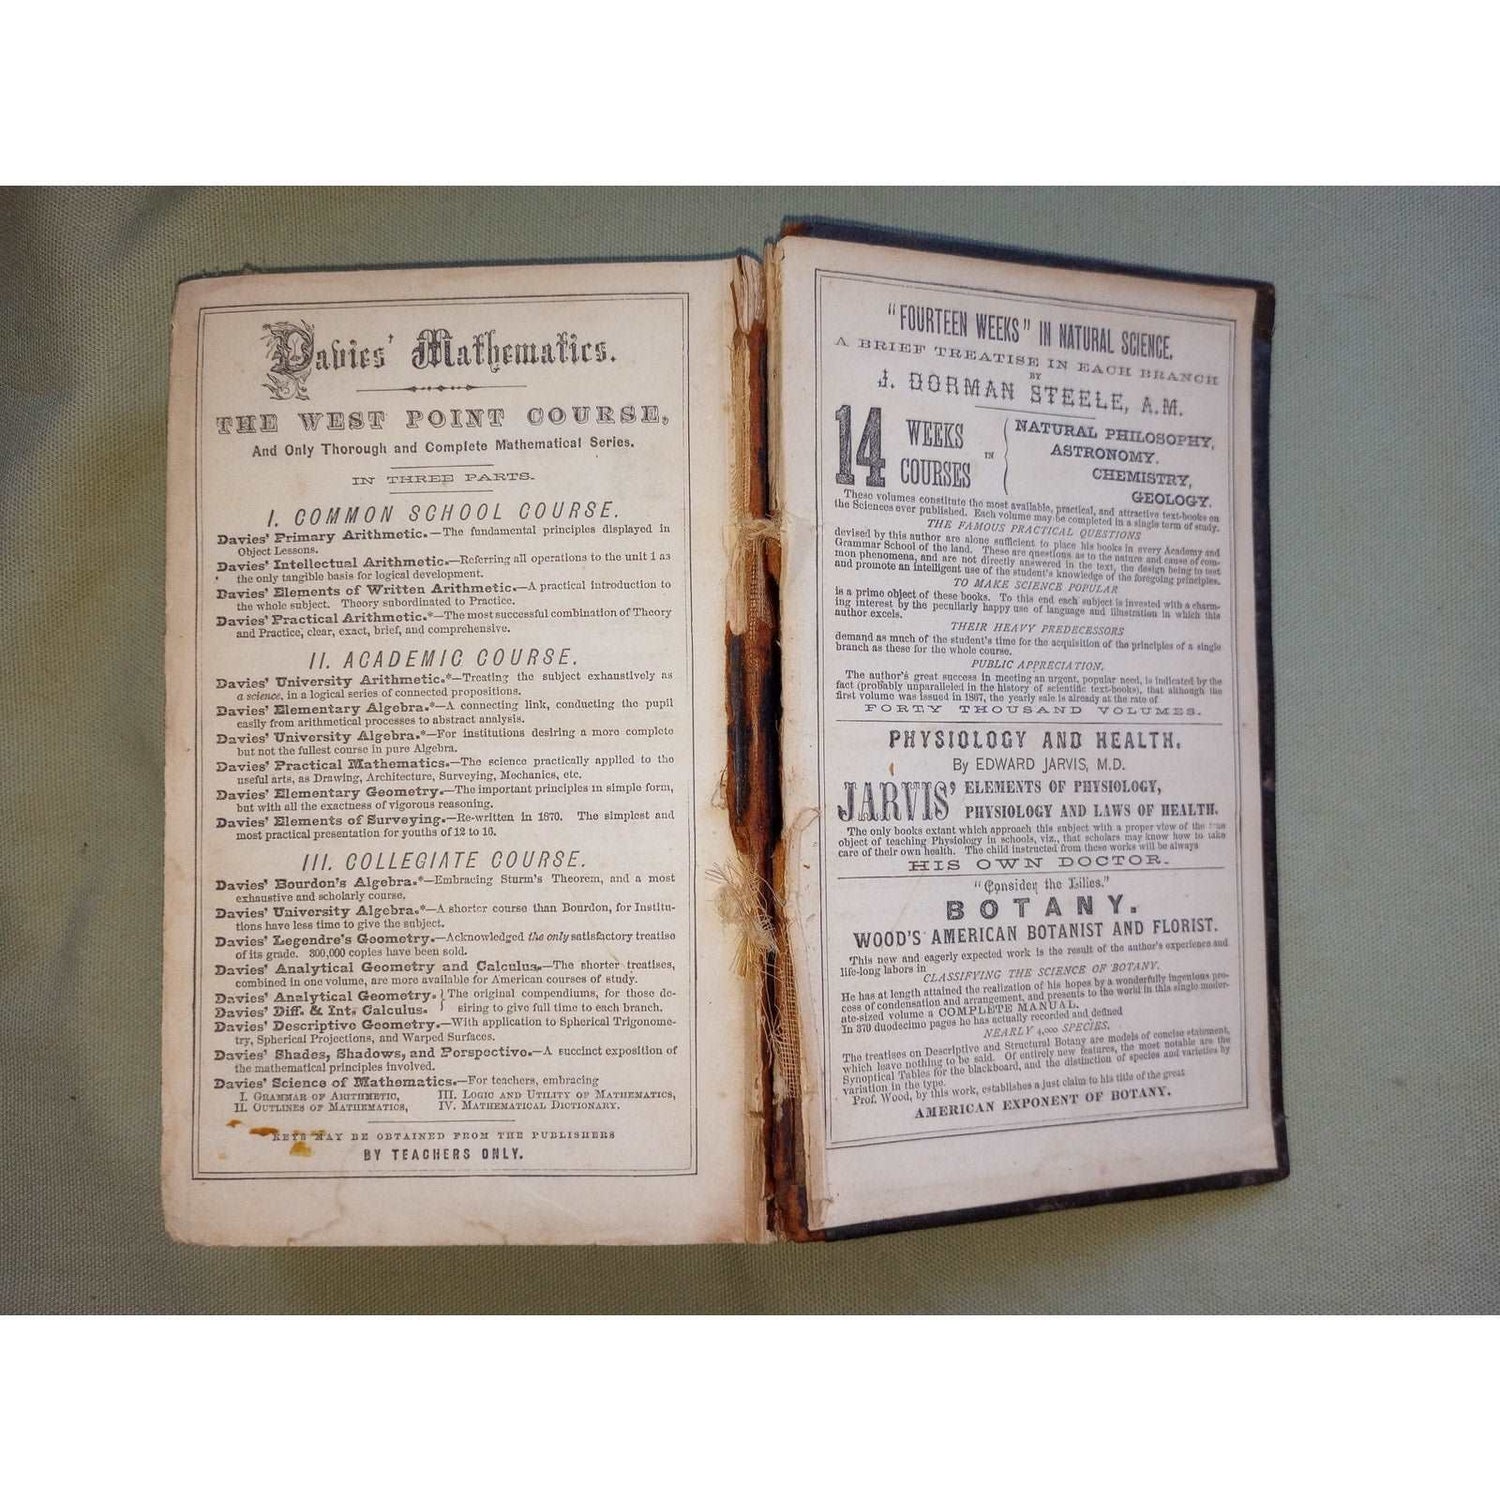 Davies' Mathematics.
THE WEST POINT COURSE,
And Only Thorough and Complete Mathematical Series.
IN THREE PARTS.
I. COMMON SCHOOL COURSE.
Davies' Primary Arithmetic.—The fundamental principles displayed in
Object Lessons.
Davies' Intellectual Arithmetic.—Referring all operations to the unit 1 as
the only tangible basis for logical development.
Davies' Elements of Written Arithmetic.—A practical introduction to
the whole subject. Theory subordinated to Practice.
Davies' Practical Arithmetic.*—The most successful combination of Theory
and Practice, clear, exact, brief, and comprehensive.
II. ACADEMIC COURSE.
Davies' University Arithmetic.*—Treating the subject exhaustively as
a science, in a logical series of connected propositions.
Davies' Elementary Algebra.*—A connecting link, conducting the pupil
easily from arithmetical processes to abstract analysis.
Davies' University Algebra.*—For institutions desiring a more complete
but not the fullest course in pure Algebra.
Davies' Practical Mathematics.—The science practically applied to the
useful arts, as Drawing, Architecture, Surveying, Mechanics, etc.
Davies' Elementary Geometry.—The important principles in simple form,
but with all the exactness of vigorous reasoning.
Davies' Elements of Surveying.—Re-written in 1870. The simplest and
most practical presentation for youths of 12 to 16.
III. COLLEGIATE COURSE.
Davies' Bourdon's Algebra.*—Embracing Sturm's Theorem, and a most
exhaustive and scholarly course.
Davies' University Algebra.*—A shorter course than Bourdon, for Institu-
tions have less time to give the subject.
Davies' Legendre's Geometry.—Acknowledged the only satisfactory treatise
of its grade. 300,000 copies have been sold.
Davies' Analytical Geometry and Calculus.—The shorter treatises,
combined in one volume, are more available for American courses of study.
Davies' Analytical Geometry. } The original compendiums, for those de-
Davies' Diff. & Int. Calculus. } siring to give full time to each branch.
Davies' Descriptive Geometry.—With application to Spherical Trigonome-
try, Spherical Projections, and Warped Surfaces.
Davies' Shades, Shadows, and Perspective.—A succinct exposition of
the mathematical principles involved.
Davies' Science of Mathematics.—For teachers, embracing
I. GRAMMAR OF ARITHMETIC, III. LOGIC AND UTILITY OF MATHEMATICS,
II. OUTLINES OF MATHEMATICS, IV. MATHEMATICAL DICTIONARY.
KEYS MAY BE OBTAINED FROM THE PUBLISHERS
BY TEACHERS ONLY.
"FOURTEEN WEEKS" IN NATURAL SCIENCE.
A BRIEF TREATISE IN EACH BRANCH
BY
J. DORMAN STEELE, A.M.
14 WEEKS COURSES IN { NATURAL PHILOSOPHY,
ASTRONOMY,
CHEMISTRY,
GEOLOGY.
These volumes constitute the most available, practical, and attractive text-books on
the Sciences ever published. Each volume may be completed in a single term of study.
THE FAMOUS PRACTICAL QUESTIONS
devised by this author are alone sufficient to place his books in every Academy and
Grammar School of the land. These are questions as to the nature and cause of com-
mon phenomena, and are not directly answered in the text, the design being to test
and promote an intelligent use of the student's knowledge of the foregoing principles.
TO MAKE SCIENCE POPULAR
is a prime object of these books. To this end each subject is invested with a charm-
ing interest by the peculiarly happy use of language and illustration in which this
author excels.
THEIR HEAVY PREDECESSORS
demand as much of the student's time for the acquisition of the principles of a single
branch as these for the whole course.
PUBLIC APPRECIATION.
The author's great success in meeting an urgent, popular need, is indicated by the
fact (probably unparalleled in the history of scientific text-books), that although the
first volume was issued in 1867, the yearly sale is already at the rate of
FORTY THOUSAND VOLUMES.
PHYSIOLOGY AND HEALTH.
By EDWARD JARVIS, M.D.
JARVIS' ELEMENTS OF PHYSIOLOGY,
PHYSIOLOGY AND LAWS OF HEALTH.
The only books extant which approach this subject with a proper view of the true
object of teaching Physiology in schools, viz., that scholars may know how to take
care of their own health. The child instructed from these works will be always
HIS OWN DOCTOR.
"Consider the Lilies."
BOTANY.
WOOD'S AMERICAN BOTANIST AND FLORIST.
This new and eagerly expected work is the result of the author's experience and
life-long labors in
CLASSIFYING THE SCIENCE OF BOTANY.
He has at length attained the realization of his hopes by a wonderfully ingenious pro-
cess of condensation and arrangement, and presents to the world in this single moder-
ate-sized volume a COMPLETE MANUAL.
In 370 duodecimo pages he has actually recorded and defined
NEARLY 4,000 SPECIES.
The treatises on Descriptive and Structural Botany are models of concise statement,
which leave nothing to be said. Of entirely new features, the most notable are the
Synoptical Tables for the blackboard, and the distinction of species and varieties by
variation in the type.
Prof. Wood, by this work, establishes a just claim to his title of the great
AMERICAN EXPONENT OF BOTANY.